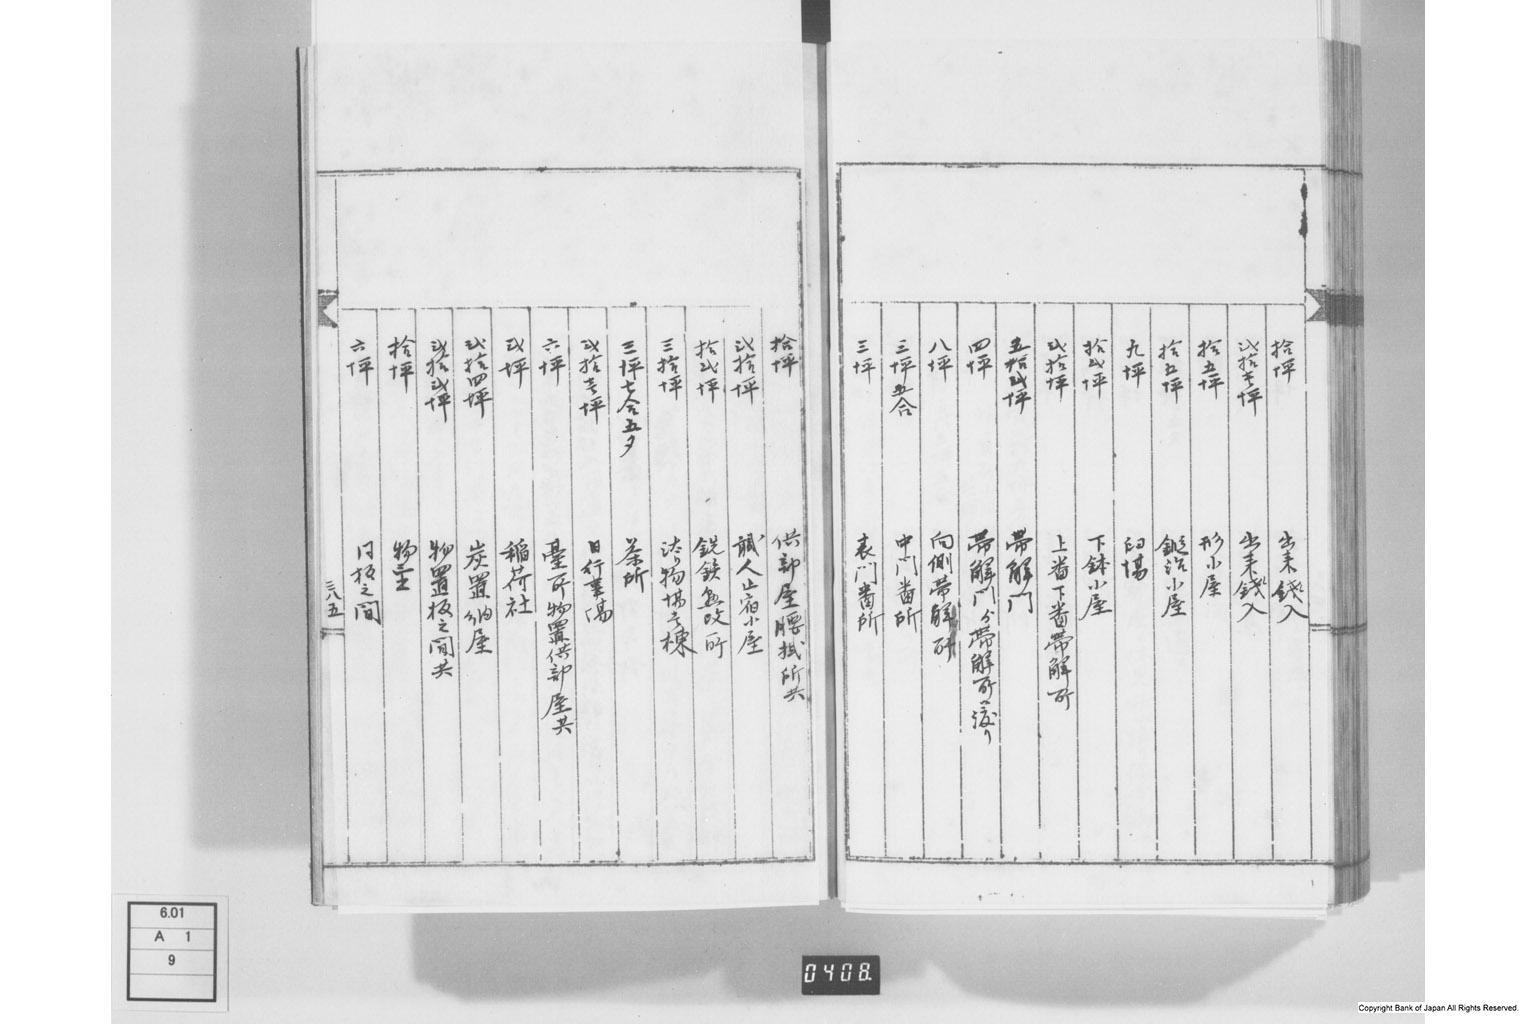 拾坪 出来銭入
弐拾壱坪 出来銭入
拾五坪 形小屋
拾五坪 鍛冶小屋
九坪 臼場
拾弐坪 下鉢小屋
弐拾坪 上番下番帯解所
五拾弐坪 帯解門
四坪 帯解門ゟ帯解所渡り
八坪 向側帯解所
三坪五合 中門番所
三坪 表門番所
拾坪 供部屋腰掛所共
弐拾坪 職人止宿小屋
拾弐坪 銑鉄改所
三拾坪 物場壱棟
三坪七合五夕 茶所
弐拾壱坪 日行事場
六坪 台所物置供部屋共
弐坪 稲荷社
弐拾四坪 炭置納屋
弐拾弐坪 物置板之間共
拾坪 物置
六坪 同板之間
三八五
6.01
A 1
9
0408.
Copyright Bank of Japan All Rights Reserved.